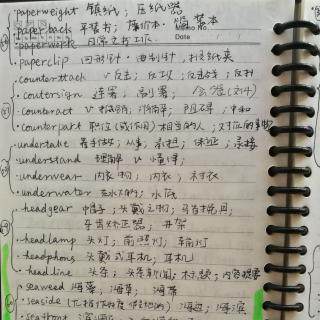 · paperweight 镇纸; 压纸器
· paperback 平装书; 简装本
Memo No.
· paperwork 日常文书工作.
Date / /
· paperclip 回形针; 曲别针, 纸夹
· counterattack v 反击; 反攻; 反击
· coutersign 连署; 副署;
· counteract v 抵消; 阻碍; 中和
· counterpart 职位(或作用)相当的人; 对应的事物
· undertake 着手做; 从事; 承担; 保证; 承接
· understand 理解 v 懂得;
· underwear 内衣物; 内衣; 衬衣
· underwater 在水下的; 水底
· headgear 帽子; 头戴之物; 马首挽具;
牙齿矫正器; 井架
· headlamp 头灯; 前照灯; 桅灯
· headphons 头戴式耳机; 耳机
· headline 头条; 头条新闻; 标题; 内容提要
· seaweed 海藻; 海草; 海带
· seaside 海边; 海滨
· seafront